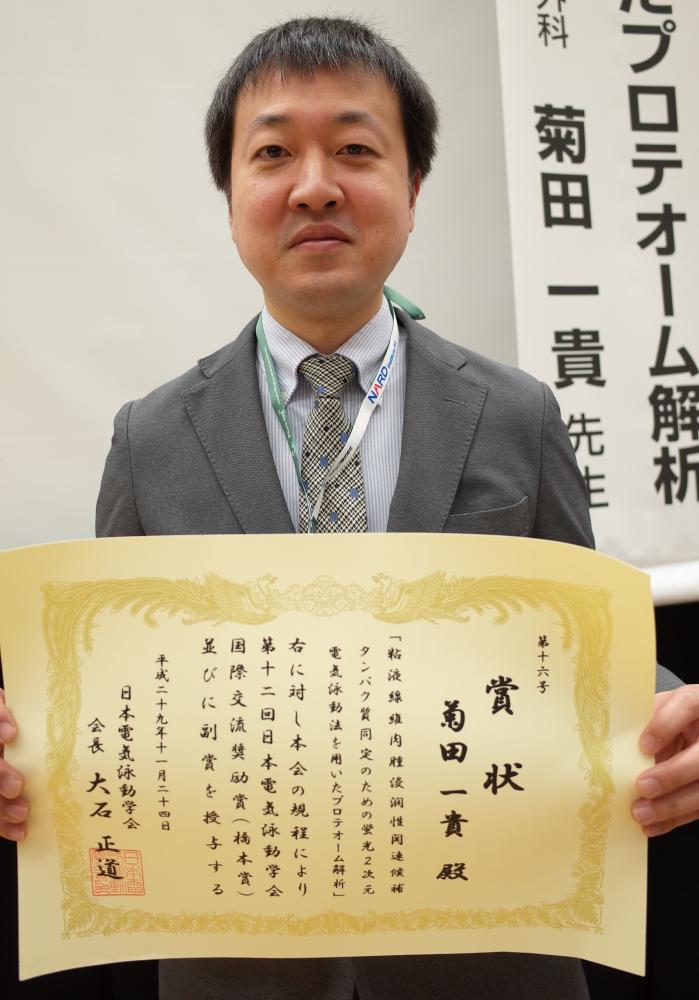 たプロテオーム解析
外科 菊田 一貴 先生
NARD
第十六号
賞状
菊田一貴 殿
「粘液線維肉腫浸潤性関連候補
タンパク質同定のための蛍光2次元
電気泳動法を用いたプロテオーム解析」
右に対し本会の規程により
第十二回日本電気泳動学会
国際交流奨励賞(橋本賞)
並びに副賞を授与する
平成二十九年十一月二十四日
日本電気泳動学会
会長 大石 正道